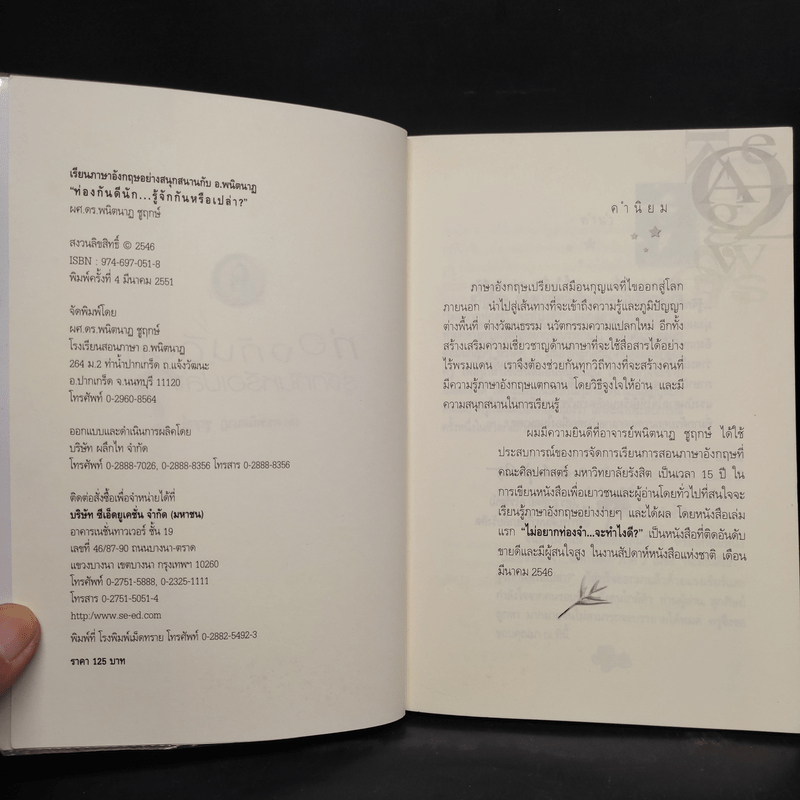 เรียนภาษาอังกฤษอย่างสนุกสนานกับ อ.พนิตนาฏ
"ท่องกันดีนัก...รู้จักกันหรือเปล่า?"
ผศ.ดร.พนิตนาฏ ชูฤกษ์
สงวนลิขสิทธิ์ © 2546
ISBN : 974-697-051-8
พิมพ์ครั้งที่ 4 มีนาคม 2551
จัดพิมพ์โดย
ผศ.ดร.พนิตนาฏ ชูฤกษ์
โรงเรียนสอนภาษา อ.พนิตนาฏ
264 ม.2 ท่าน้ำปากเกร็ด ถ.แจ้งวัฒนะ
อ.ปากเกร็ด จ.นนทบุรี 11120
โทรศัพท์ 0-2960-8564
ออกแบบและดำเนินการผลิตโดย
บริษัท ผลึกไท จำกัด
โทรศัพท์ 0-2888-7026, 0-2888-8356 โทรสาร 0-2888-8356
ติดต่อสั่งซื้อเพื่อจำหน่ายได้ที่
บริษัท ซีเอ็ดยูเคชั่น จำกัด (มหาชน)
อาคารเนชั่นทาวเวอร์ ชั้น 19
เลขที่ 46/87-90 ถนนบางนา-ตราด
แขวงบางนา เขตบางนา กรุงเทพฯ 10260
โทรศัพท์ 0-2751-5888, 0-2325-1111
โทรสาร 0-2751-5051-4
http:/www.se-ed.com
พิมพ์ที่ โรงพิมพ์เม็ดทราย โทรศัพท์ 0-2882-5492-3
ราคา 125 บาท
คำนิยม
ภาษาอังกฤษเปรียบเสมือนกุญแจที่ไขออกสู่โลก
ภายนอก นำไปสู่เส้นทางที่จะเข้าถึงความรู้และภูมิปัญญา
ต่างพื้นที่ ต่างวัฒนธรรม นวัตกรรมความแปลกใหม่ อีกทั้ง
สร้างเสริมความเชี่ยวชาญด้านภาษาที่จะใช้สื่อสารได้อย่าง
ไร้พรมแดน เราจึงต้องช่วยกันทุกวิถีทางที่จะสร้างคนที่
มีความรู้ภาษาอังกฤษแตกฉาน โดยวิธีจูงใจให้อ่าน และมี
ความสนุกสนานในการเรียนรู้
ผมมีความยินดีที่อาจารย์พนิตนาฏ ชูฤกษ์ ได้ใช้
ประสบการณ์ของการจัดการเรียนการสอนภาษาอังกฤษที่
คณะศิลปศาสตร์ มหาวิทยาลัยรังสิต เป็นเวลา 15 ปี ใน
การเขียนหนังสือเพื่อเยาวชนและผู้อ่านโดยทั่วไปที่สนใจจะ
เรียนรู้ภาษาอังกฤษอย่างง่ายๆ และได้ผล โดยหนังสือเล่ม
แรก "ไม่อยากท่องจำ...จะทำไงดี?" เป็นหนังสือที่ติดอันดับ
ขายดีและมีผู้สนใจสูง ในงานสัปดาห์หนังสือแห่งชาติ เดือน
มีนาคม 2546